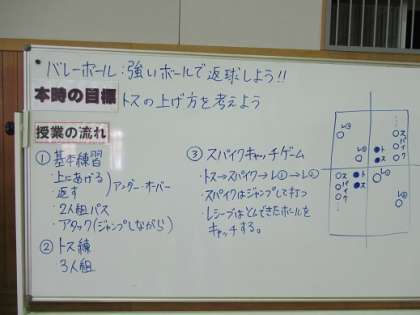 バレーボール:強いボールで返球しよう!!
本時の目標
トスの上げ方を考えよう
授業の流れ
①基本練習
・上にあげる
返す
アンダー・オーバー
・2人組パス
・アタック(ジャンプしながら)
②トス練
・3人組
③スパイクキャッチゲーム
・トス→スパイク→レ①→レ②
・スパイクはジャンプして打つ
・レシーブはとんできたボールを
キャッチする。
レ②
スパイク
トス
レ①
スパイク
トス
レ①
レ②